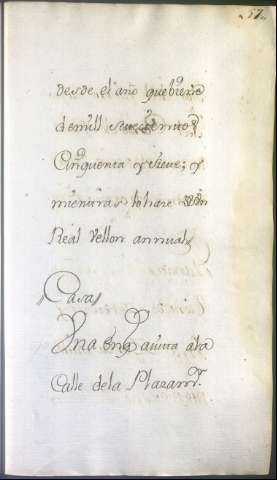 57
desde el año que biene
de mill Setecientos
Cinquenta y Sieve; y
mientras lo hare Con
Real Vellon annual
Casa
Una en qª a
Calle de la Plazª